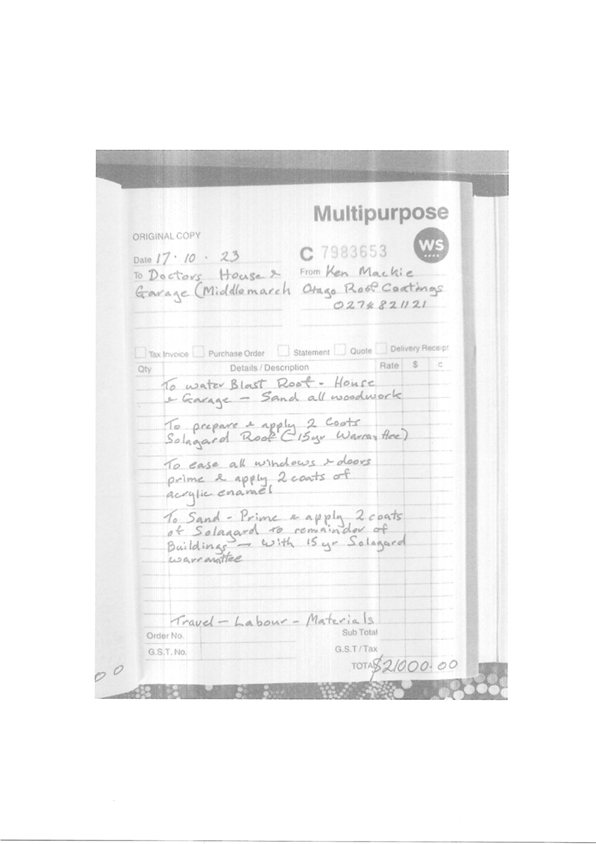 Multipurpose
ORIGINAL COPY
WS
C 7983653
Date 17 · 10 · 23
To Doctors House &
Garage (Middlemarch
From Ken Mackie
Otago Roof Coatings
0274821121
Tax Invoice Purchase Order Statement Quote Delivery Receipt
Qty Details / Description Rate $ c
To water Blast Roof - House
& Garage - Sand all woodwork
To prepare & apply 2 Coats
Solagard Roof (15yr Warranttee)
To ease all windows & doors
prime & apply 2 coats of
acrylic enamel
To Sand - Prime & apply 2 coats
of Solagard to remainder of
Buildings - with 15 yr Solagard
warranttee
Travel - Labour - Materials
Order No. Sub Total
G.S.T. No. G.S.T / Tax
TOTAL $21000.00
00